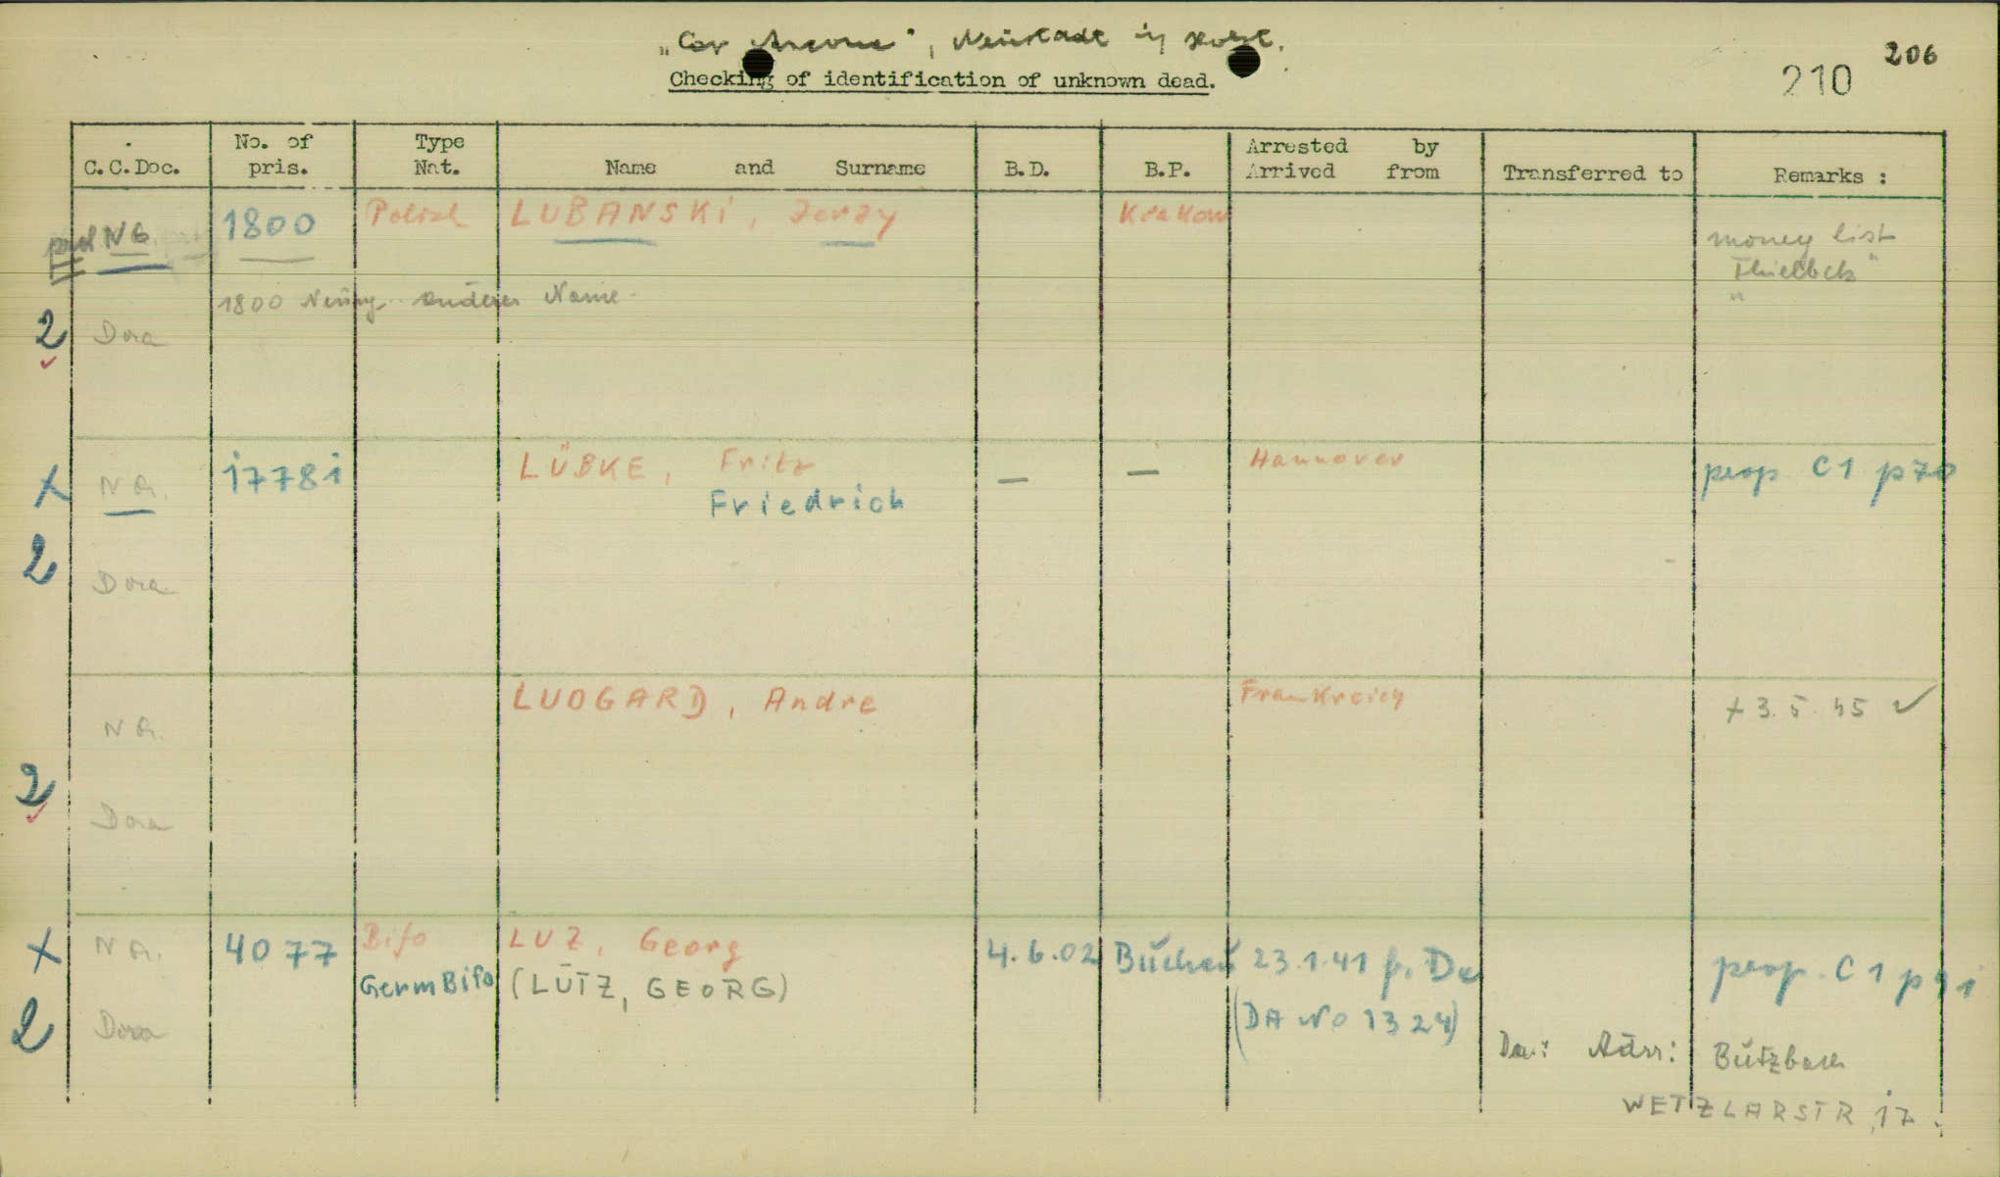 "Cap Arcona", Neustadt in Holst.
206
210
Checking of identification of unknown dead.
C.C.Doc. No. of pris. Type Nat. Name and Surname B.D. B.P. Arrested by Arrived from Transferred to Remarks :
NG 1800 Polish LUBANSKI, Jerzy Krakow money list
"Thielbek"
1800 Neueng. anderer Name
2 Dora
x NG. 17781 LÜBKE, Fritz — — Hannover prop C1 p70
Friedrich
2 Dora
LUOGARD, Andre Frankreich + 3.5.45 ✓
NG.
2 Dora
x NG. 4077 Bifo LUZ, Georg 4.6.02 Büchen 23.1.41 fr. Da prop. C1 p91
Germ Bifo (LUTZ, GEORG)
2 Dora (DA No 1324) Da.: Adr: Butzbach
WETZLARSTR. 17.